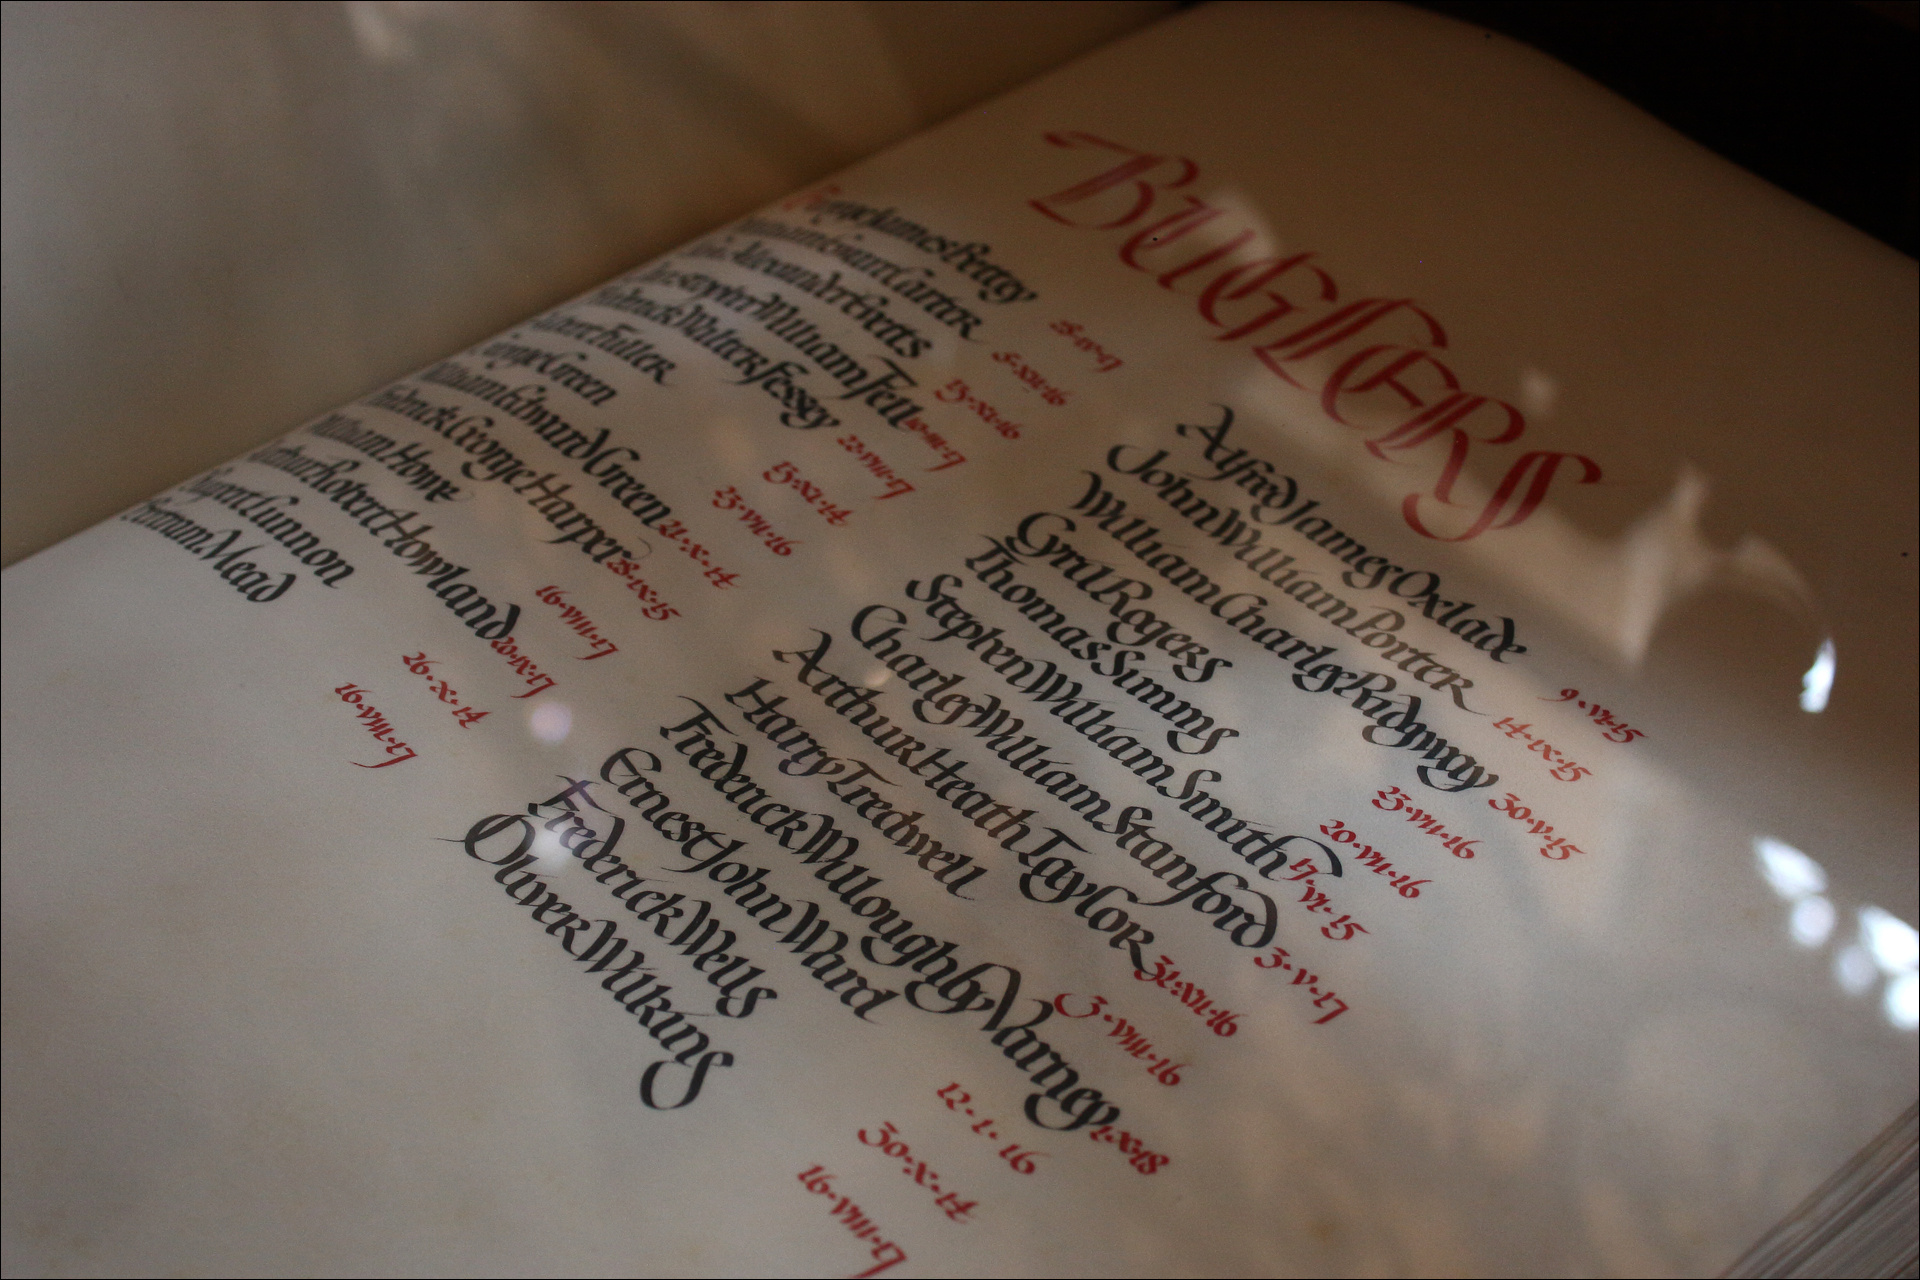 BUGLERS
James
William Carter 5·XII·16
Alexander 15·XI·16
William Fell 10·III·17
Frederick Walter Fessey 22·VIII·17
Albert Fuller 15·XI·14
Green 23·VII·16
William Edward Green 21·X·14
Frederick George Harper 28·IX·15
William Hone 16·VIII·17
Arthur Robert Howland 20·IX·17
Lunnon 26·X·14
Bertram Mead 16·VIII·17
Alfred James Oxlade 9·VI·15
John William Porter 14·IX·15
William Charles Ridgway 30·V·15
Cyril Rogers 23·VII·16
Thomas Simms 20·VII·16
Stephen William Smith 17·VI·15
Charles William Stanford 3·V·17
Arthur Heath Taylor 31·XII·16
Harry Tredwell 3·VIII·16
Frederick Willoughby Varney 1·X·18
Ernest John Ward 12·I·16
Frederick Wells 30·X·14
Oliver Wilkins 16·VIII·17